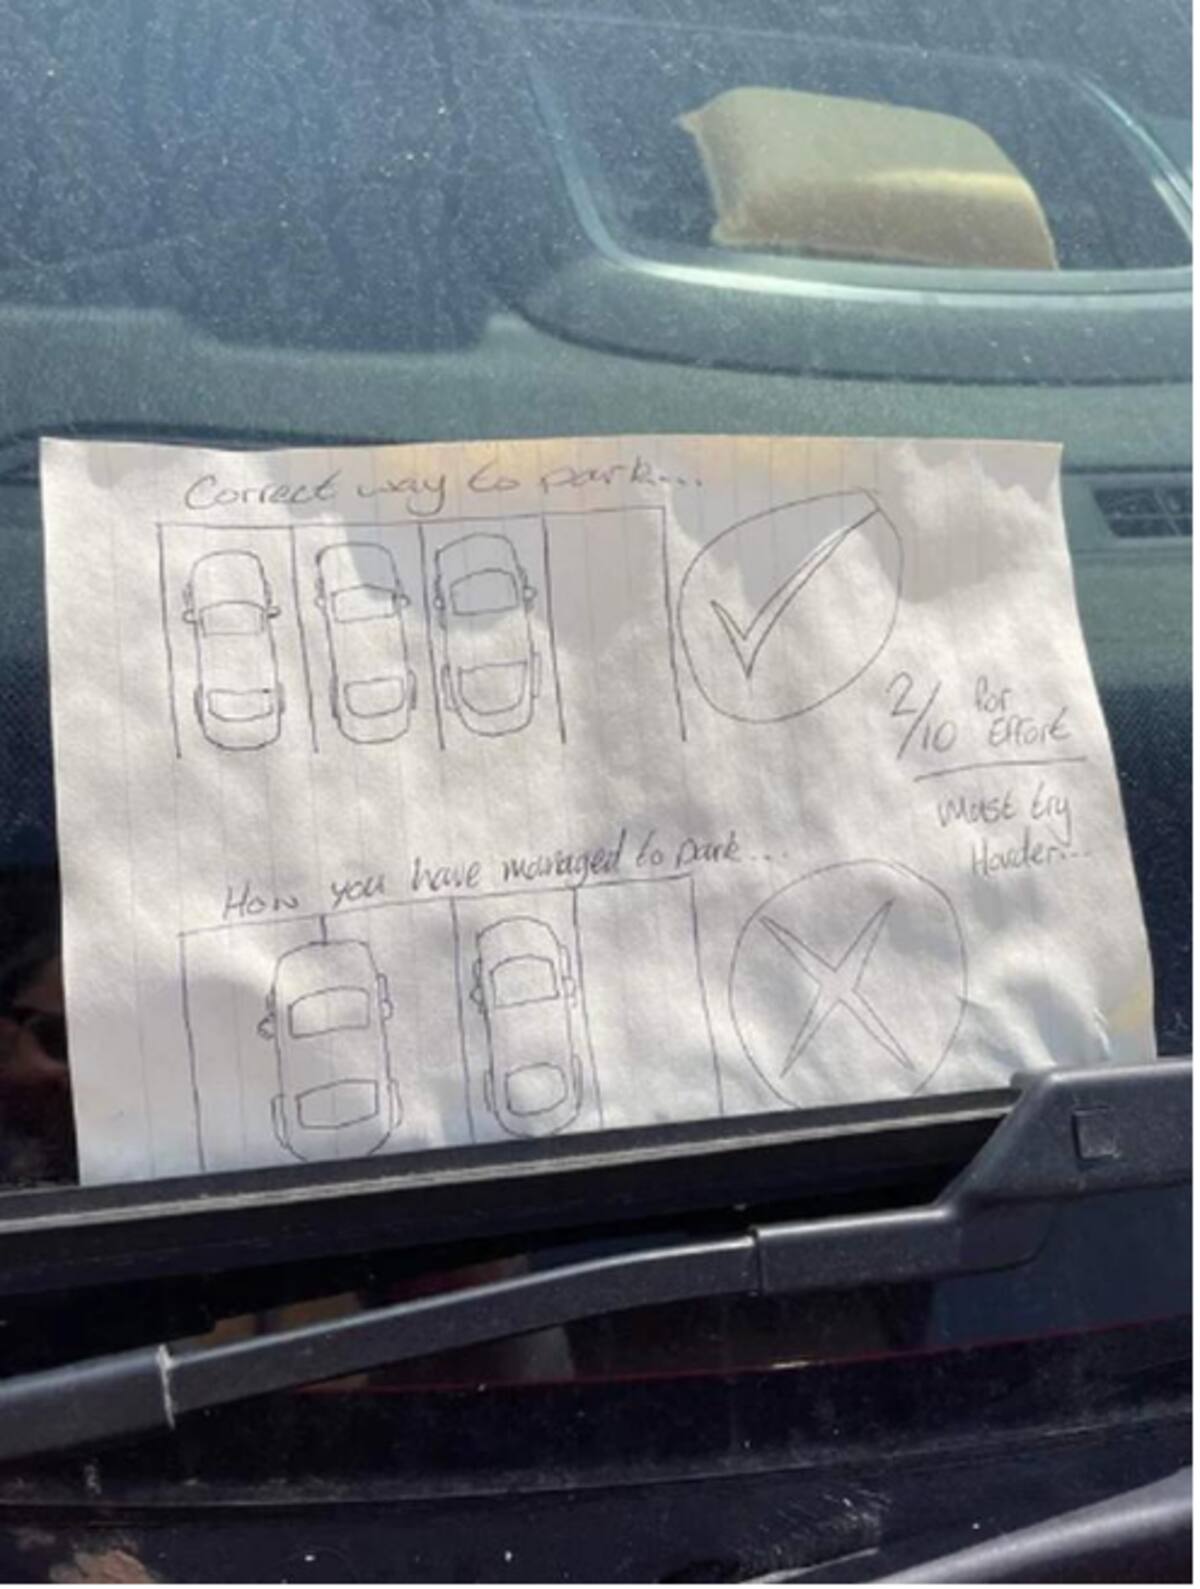 Correct way to park...
2/10 for Effort
Must try
Harder...
How you have managed to park...